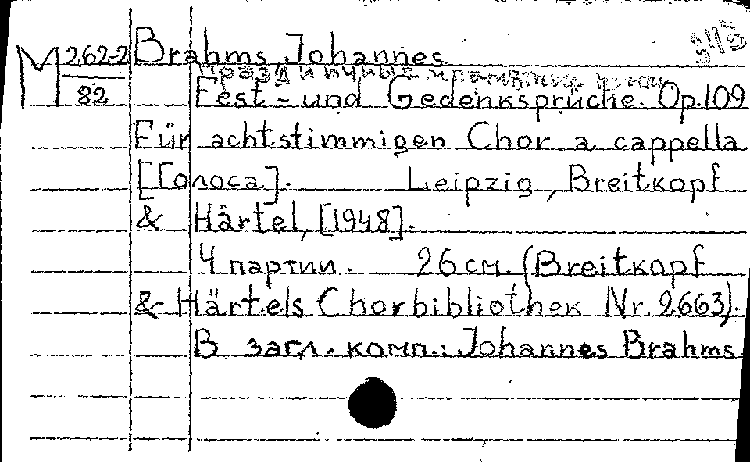 M 262-2 Brahms, Johannes
82 Fest- und Gedenksprüche. Op. 109
Für achtstimmigen Chor a cappella
[Голоса]. Leipzig, Breitkopf
& Härtel, [1948].
4 партии. 26 см. (Breitkopf
& Härtels Chorbibliothek Nr. 2663).
В загл. комп.: Johannes Brahms